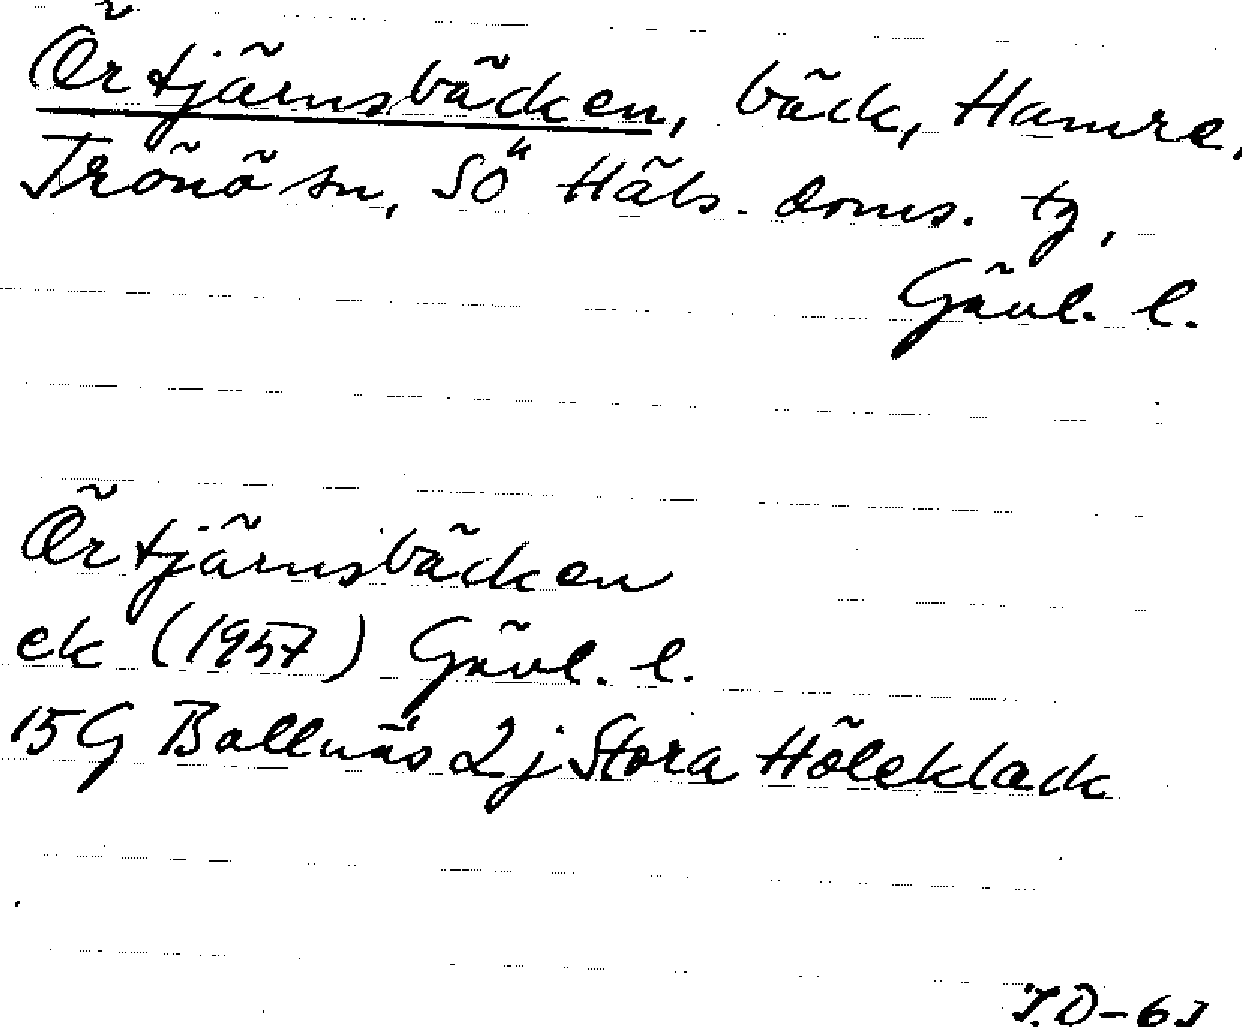 Örtjärnsbäcken, bäck, Hamre,
Trönö sn, SÖ Häls. doms. tg,
Gävl. l.
Örtjärnsbäcken
ek (1957) Gävl. l.
15G Bollnäs 2j Stora Höleklack